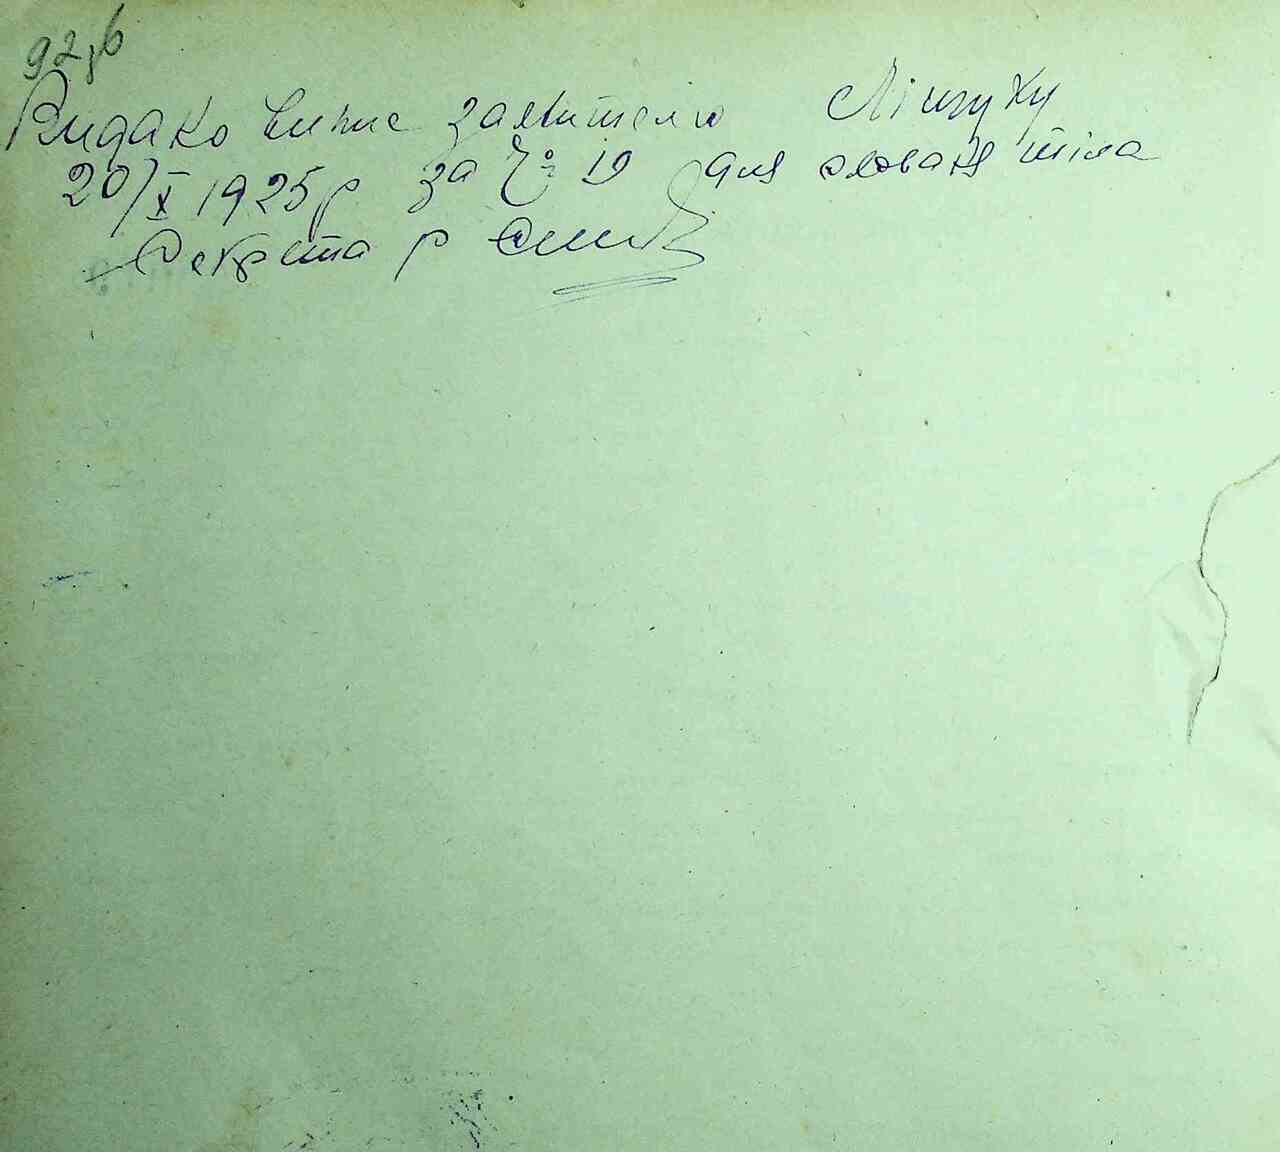 92зв
Видако Випис заявителю Ліщуку
20/X 1925 р за № 19 для ховання тіла
Секрета р